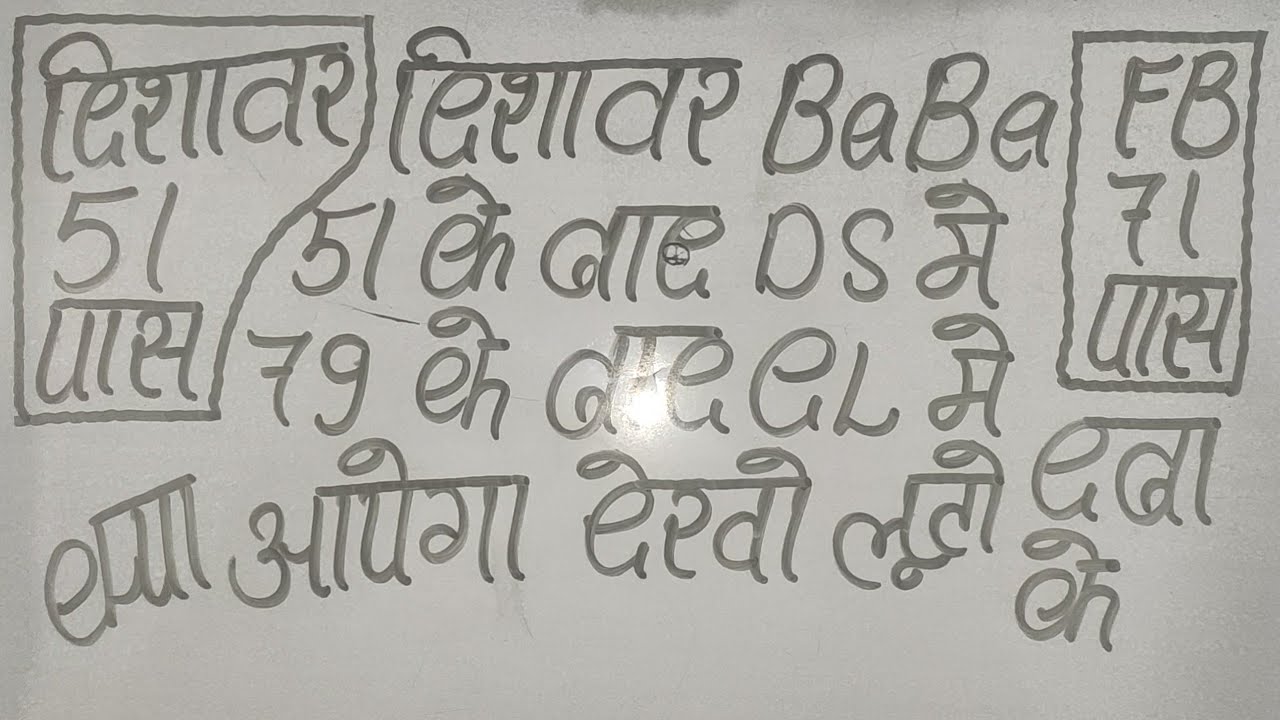 दिशावर
51
पास
दिशावर BaBa
51 के बाद DS मे
79 के बाद DL मे
क्या आयेगा देखो लूटो दबा
के
FB
71
पास